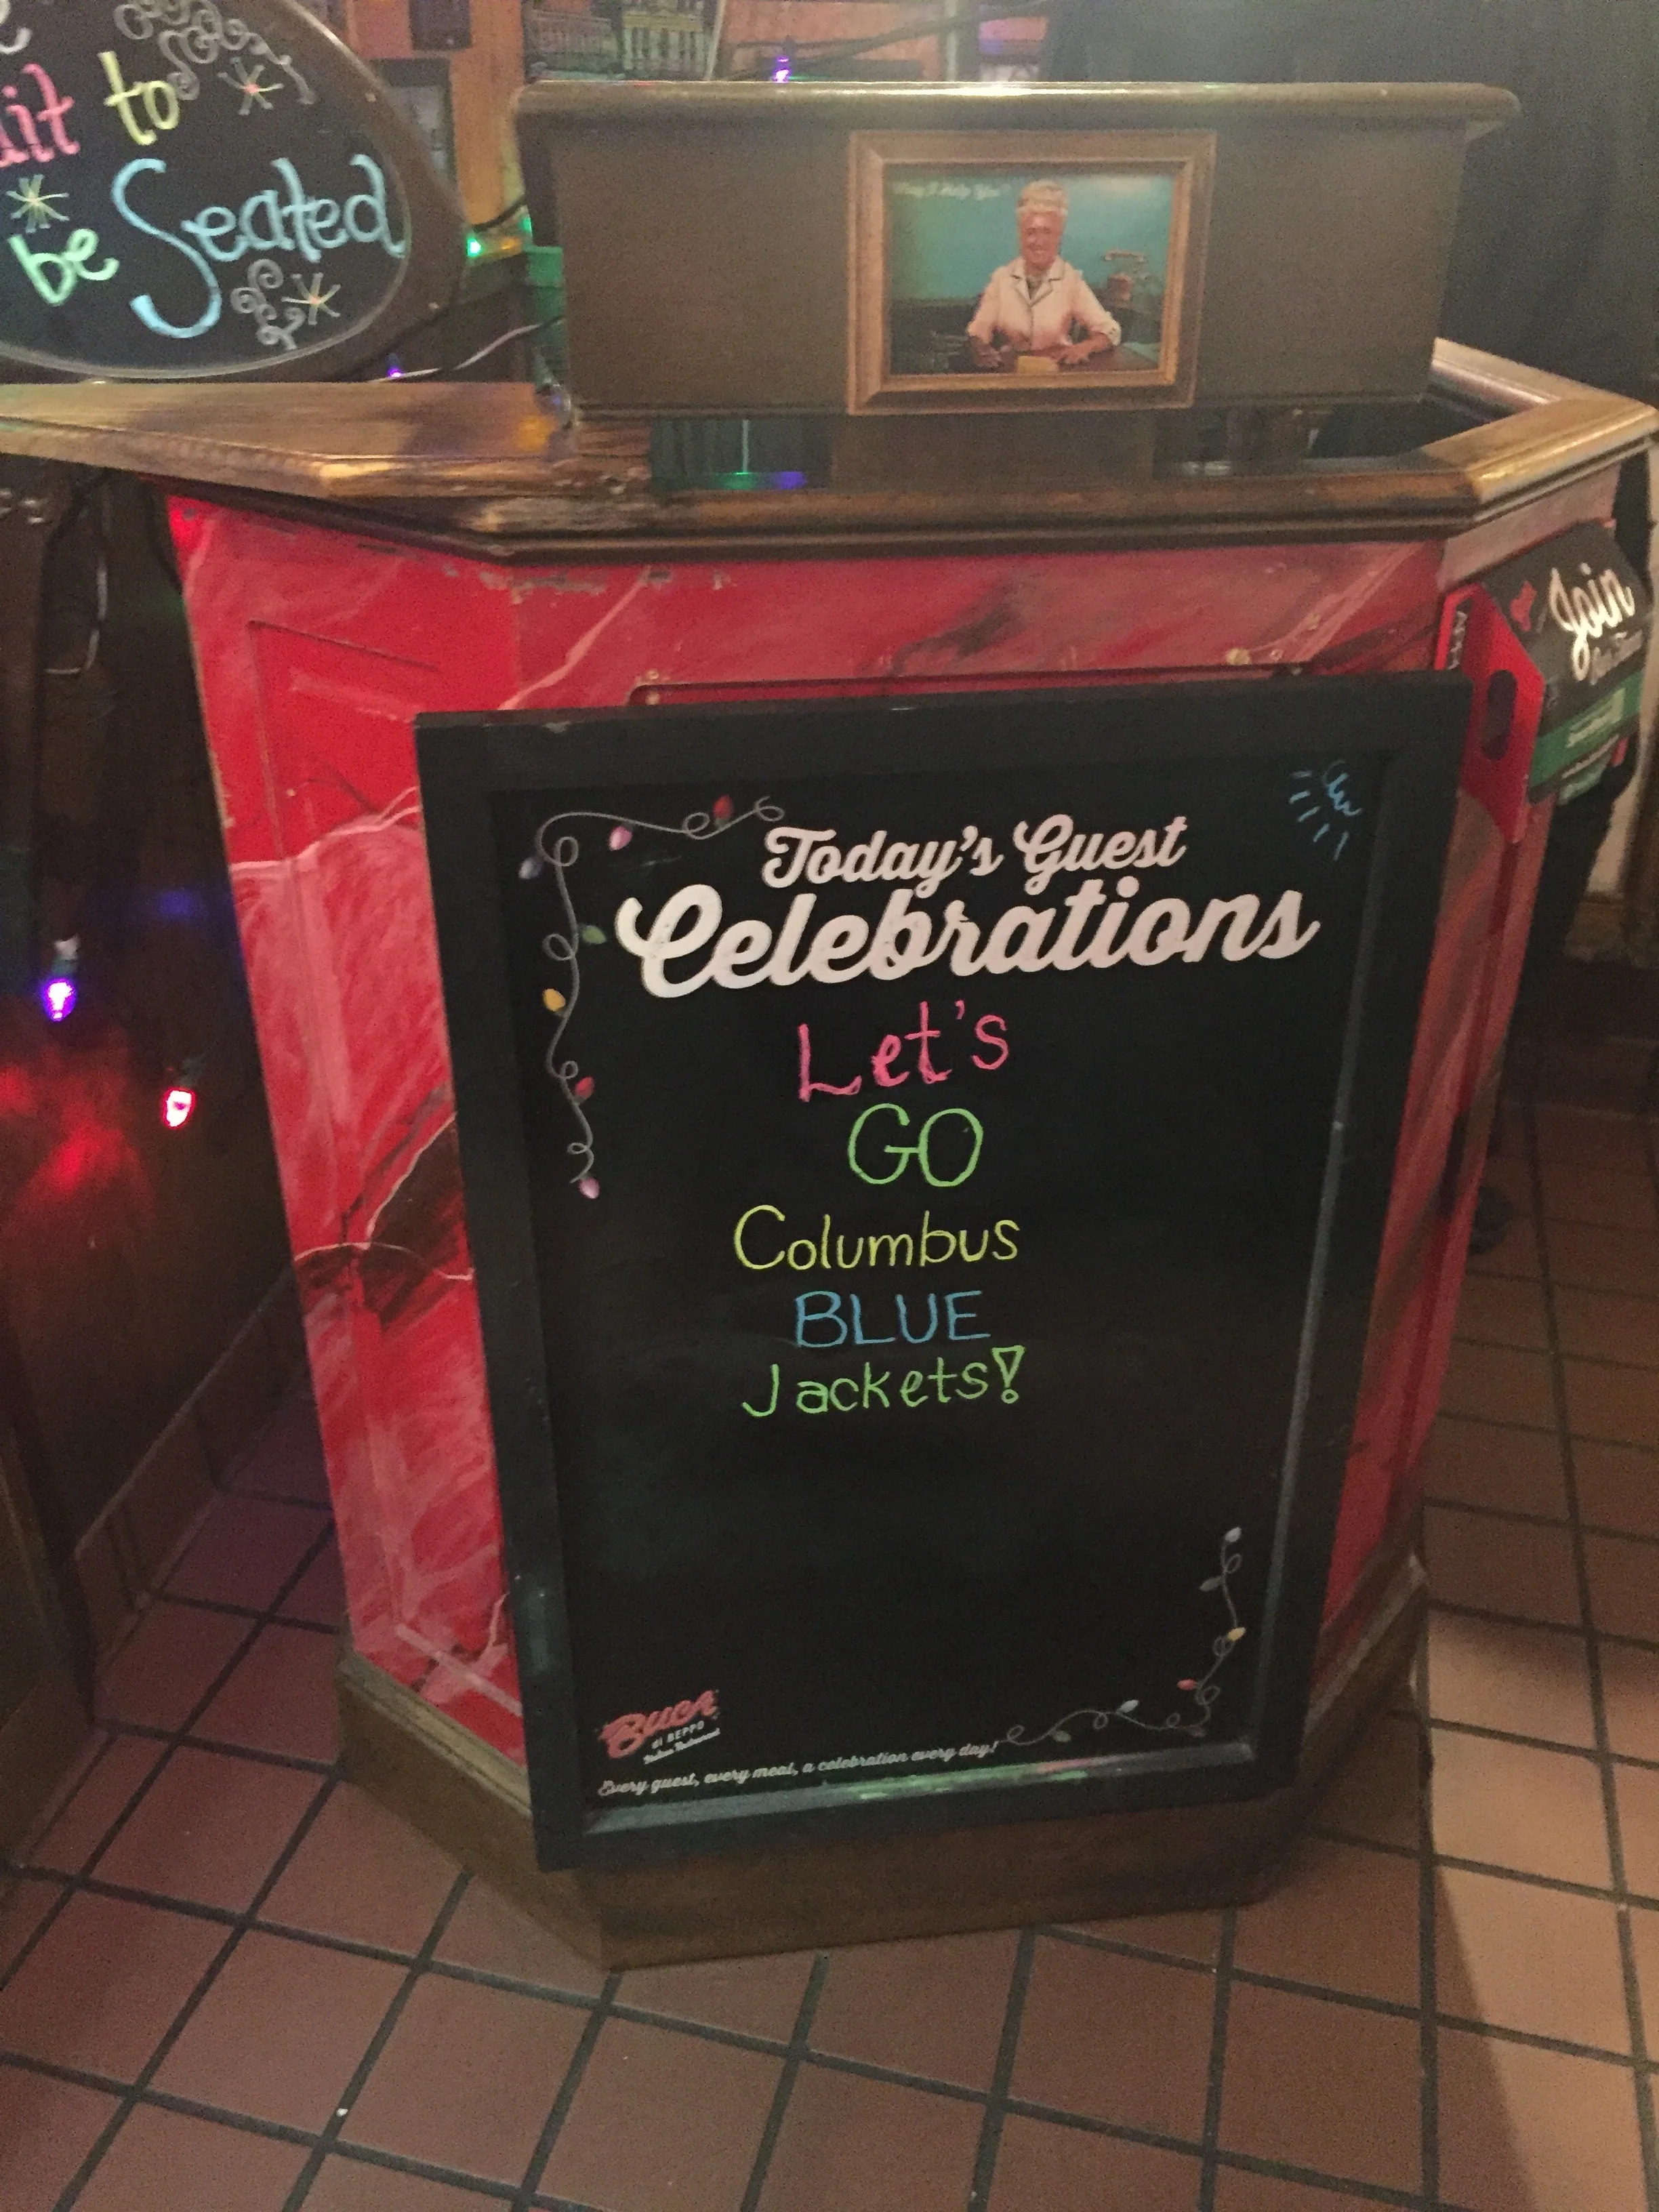 to
be Seated
May I Help You?
Join
Today's Guest
Celebrations
Let's
GO
Columbus
BLUE
Jackets!
BUCA
di BEPPO
Italian Restaurant
Every guest, every meal, a celebration every day!